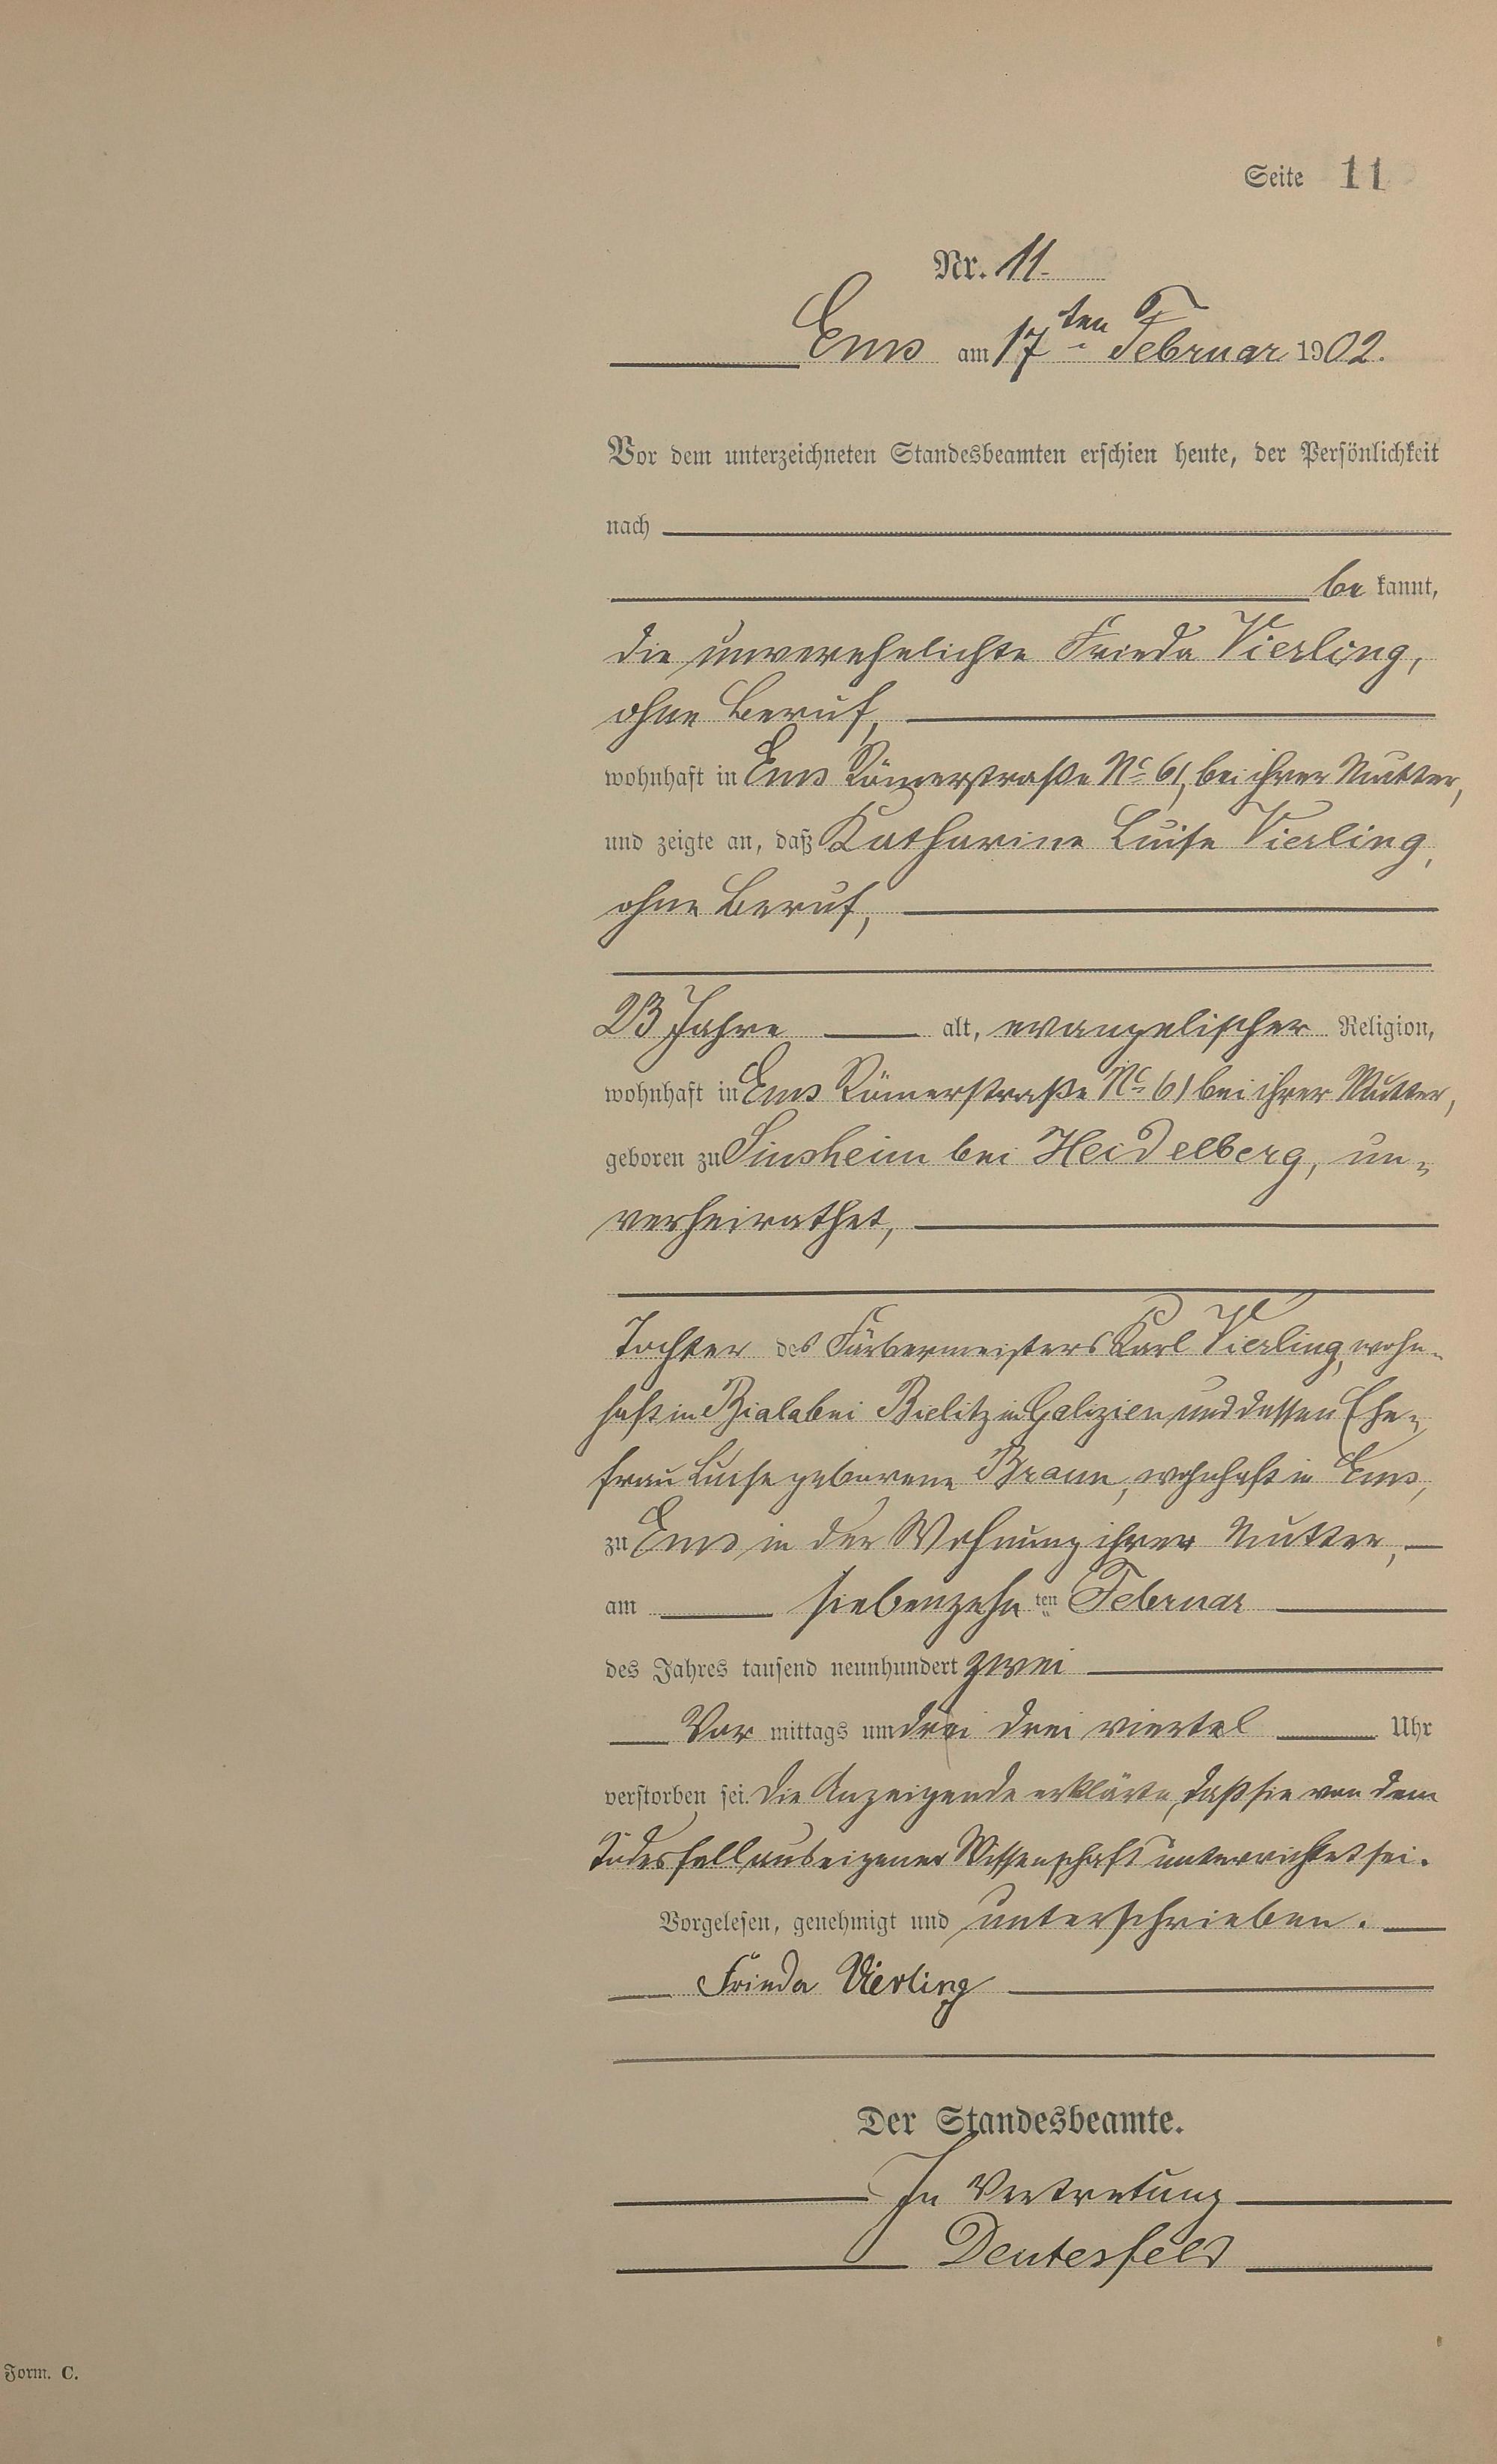 Seite 11
Nr. 11.
Ems am 17ten Februar 1902.
Vor dem unterzeichneten Standesbeamten erschien heute, der Persönlichkeit
nach
be kannt,
die unverehelichte Frieda Vierling,
ohne Beruf,
wohnhaft in Ems Römerstraße No 61, bei ihrer Mutter,
und zeigte an, daß Katharine Luise Vierling,
ohne Beruf,
23 Jahre alt, evangelischer Religion,
wohnhaft in Ems Römerstraße No 61 bei ihrer Mutter,
geboren zu Sinsheim bei Heidelberg, un-
verheirathet,
Tochter des Färbermeisters Karl Vierling, wohn-
haft in Biala bei Bielitz in Galizien und dessen Ehe-
frau Luise geborene Braun, wohnhaft in Ems,
zu Ems in der Wohnung ihrer Mutter,
am siebenzehnten Februar
des Jahres tausend neunhundert zwei
Vor mittags um drei drei viertel Uhr
verstorben sei. Die Anzeigende erklärte, daß sie von dem
Todesfall aus eigener Wissenschaft unterrichtet sei.
Vorgelesen, genehmigt und unterschrieben.
Frieda Vierling
Der Standesbeamte.
In Vertretung
Deutesfeld
Form. C.